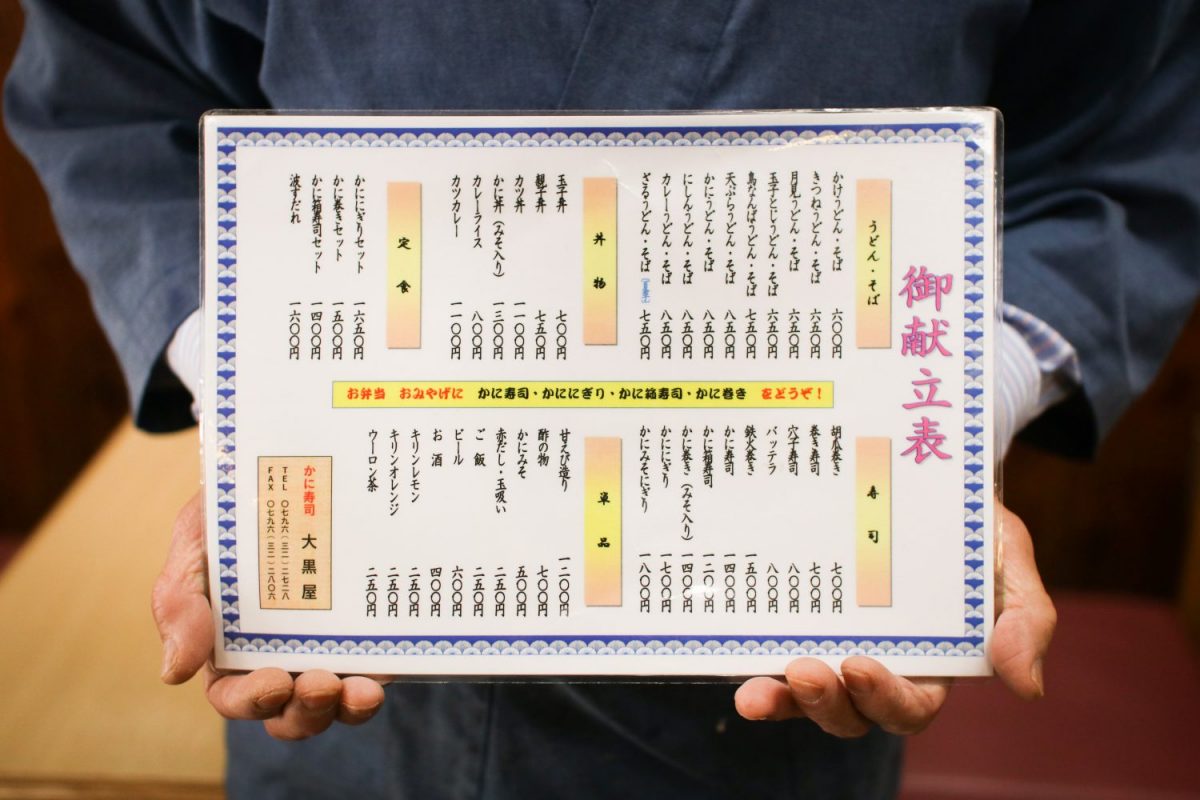 御献立表
うどん・そば
かけうどん・そば 六〇〇円
きつねうどん・そば 六五〇円
月見うどん・そば 六五〇円
玉子とじうどん・そば 六五〇円
鳥なんばうどん・そば 七五〇円
天ぷらうどん・そば 八五〇円
かにうどん・そば 八五〇円
にしんうどん・そば 八五〇円
カレーうどん・そば 八五〇円
ざるうどん・そば 七五〇円
丼物
玉子丼 七〇〇円
親子丼 七五〇円
カツ丼 一一〇〇円
かに丼(みそ入り) 一三〇〇円
カレーライス 八〇〇円
カツカレー 一一〇〇円
定食
かににぎりセット 一六五〇円
かに巻きセット 一五〇〇円
かに箱寿司セット 一四〇〇円
波すだれ 一六〇〇円
お弁当 おみやげに かに寿司・かににぎり・かに箱寿司・かに巻き をどうぞ!
寿司
胡瓜巻き 七〇〇円
巻き寿司 七〇〇円
穴子寿司 八〇〇円
バッテラ 八〇〇円
鉄火巻き 一五〇〇円
かに寿司 一四〇〇円
かに箱寿司 一二〇〇円
かに巻き(みそ入り) 一四〇〇円
かににぎり 一七〇〇円
かにみそにぎり 一八〇〇円
単品
甘えび造り 一二〇〇円
酢の物 七〇〇円
かにみそ 五〇〇円
赤だし・玉吸い 二五〇円
ご飯 二五〇円
ビール 六〇〇円
お酒 四〇〇円
キリンレモン 二五〇円
キリンオレンジ 二五〇円
ウーロン茶 二五〇円
かに寿司 大黒屋
TEL 〇七九六(三二)二七二八
FAX 〇七九六(三二)二八〇六